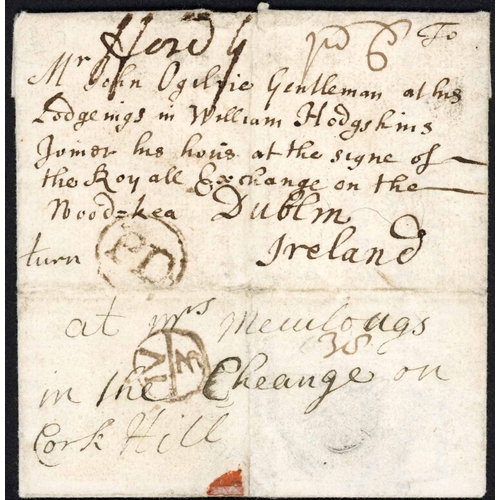 pd 6 To
Mr John Ogilvie Gentleman at his
Lodgenings in William Hodgskins
Joiner his hous at the signe of
the Royall Exchange on the
Wood=kea Dublin
Ireland
turn
PD
at Mrs Mewlougs
38
AV
in the Cheange on
Cork Hill